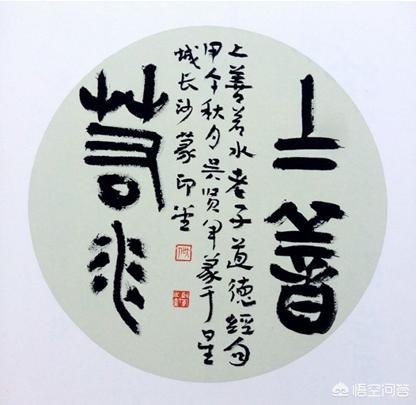 上善
若水
上善若水老子道德經句
甲午秋月吴贤军篆于星
城长沙篆印堂
悟空问答